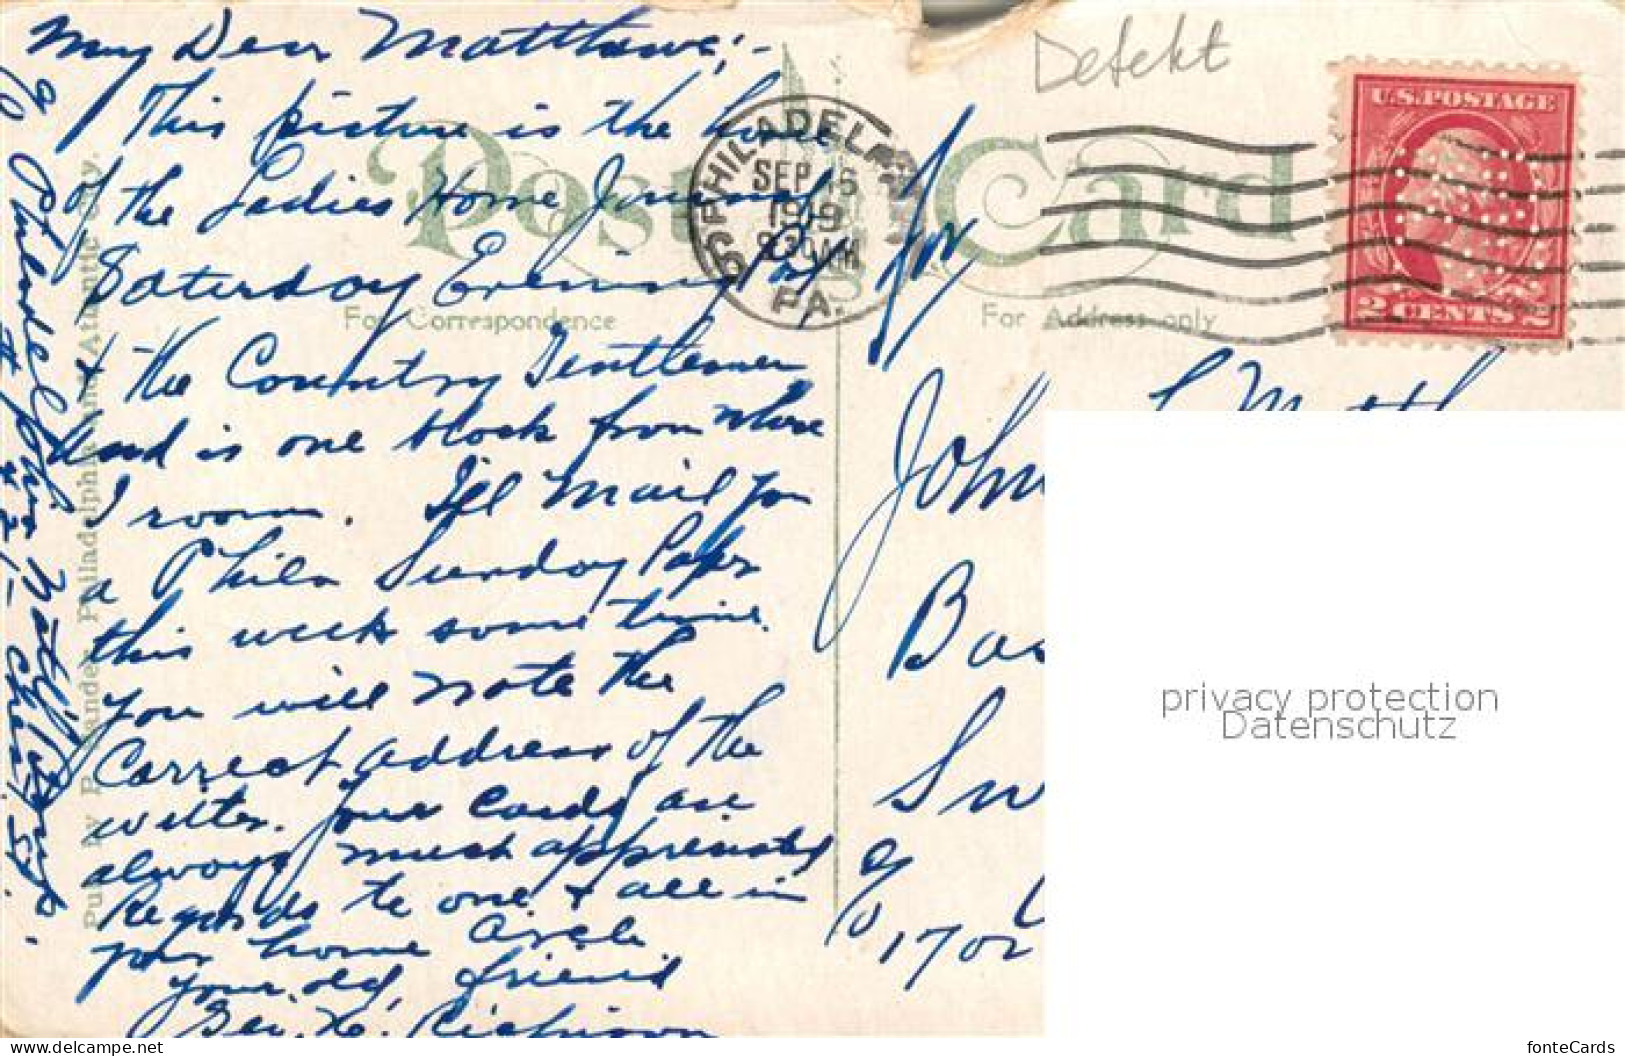 My Dear Matthews;-
This picture is the home
of the Ladies Home Journal
Saturday Evening Post
& the Country Gentlemen
and is one block from where
I room. I'll mail you
a Phila Sunday Paper
this week some time.
You will note the
Correct address of the
writer. Your cards are
always much appreciated
Regards to one & all in
your home Circle
Your old friend
Geo. H. Richison
% Philadelphia Nat'l Bank.
# 421- Chest. St.
Post Card
For Correspondence
For Address only
PHILADELPHIA
SEP 16
1919
830AM
PA.
6
Defekt
U.S.POSTAGE
2 CENTS 2
John
Bo
Sw
%
1702
Philadelphia and Atlantic City.
privacy protection
Datenschutz
fonteCards